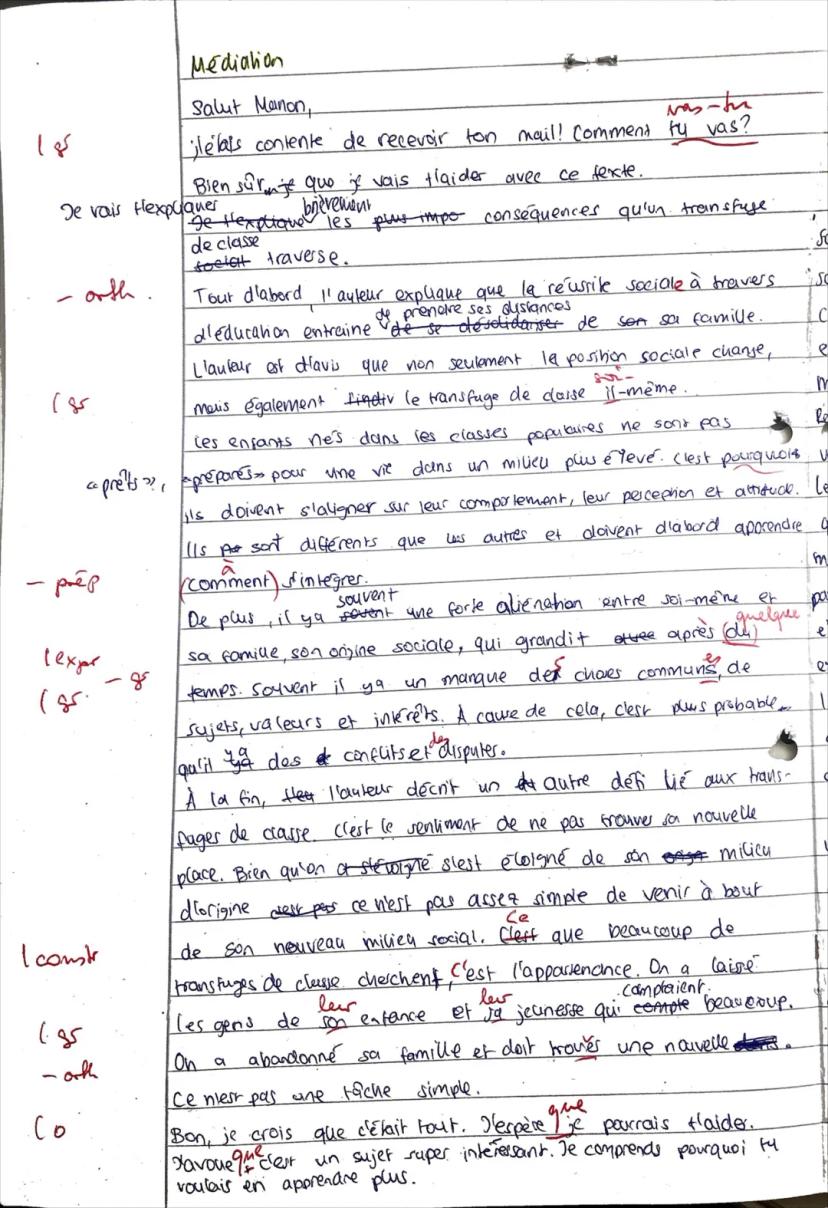 Médiation
Salut Manon,
vas-tu
I gr
j'étais contente de recevoir ton mail! Comment tu vas?
Bien sûr je que je vais t'aider avec ce texte.
Je vais t'expliquer
Je t'explique brièvement les plus impo conséquences qu'un transfuge
de classe
social traverse.
- orth.
Tout d'abord, l'auteur explique que la réussite sociale à travers
de prendre ses distances
d'éducation entraine de se désolidariser de son sa famille.
L'auteur est d'avis que non seulement la position sociale change,
soi-
I gr
mais également l'indiv le transfuge de classe il-même.
Les enfants nés dans les classes populaires ne sont pas
«prêts»,
«préparés» pour une vie dans un milieu plus élevé. C'est pourquois
ils doivent s'aligner sur leur comportement, leur perception et attitude.
Ils sont différents que les autres et doivent d'abord apprendre
à
- prép
(comment) s'intégrer.
souvent
De plus, il y a souvent une forte aliénation entre soi-même et
quelque
I expr
sa famille, son origine sociale, qui grandit après (du)
I gr. - gr
temps. Souvent il y a un manque des choses communs, de
es
sujets, valeurs et intérêts. À cause de cela, c'est plus probable
y a
des
qu'il y a des conflits et disputes.
À la fin, l'auteur décrit un autre défi lié aux trans-
fuges de classe. C'est le sentiment de ne pas trouver sa nouvelle
place. Bien qu'on s'est éloigné de son milieu
d'origine c'est pas ce n'est pas assez simple de venir à bout
Ce
de son nouveau milieu social. C'est que beaucoup de
I constr
transfuges de classe cherchent, c'est l'appartenance. On a laissé
leur leur comptaient
les gens de son enfance et sa jeunesse qui compte beaucoup.
I gr
On a abandonné sa famille et doit trouvés une nouvelle dans.
- orth
Ce n'est pas une tâche simple.
que
I o
Bon, je crois que c'était tout. J'espère je pourrais t'aider.
que
J'avoue c'est un sujet super intéressant. Je comprends pourquoi tu
voulais en apprendre plus.